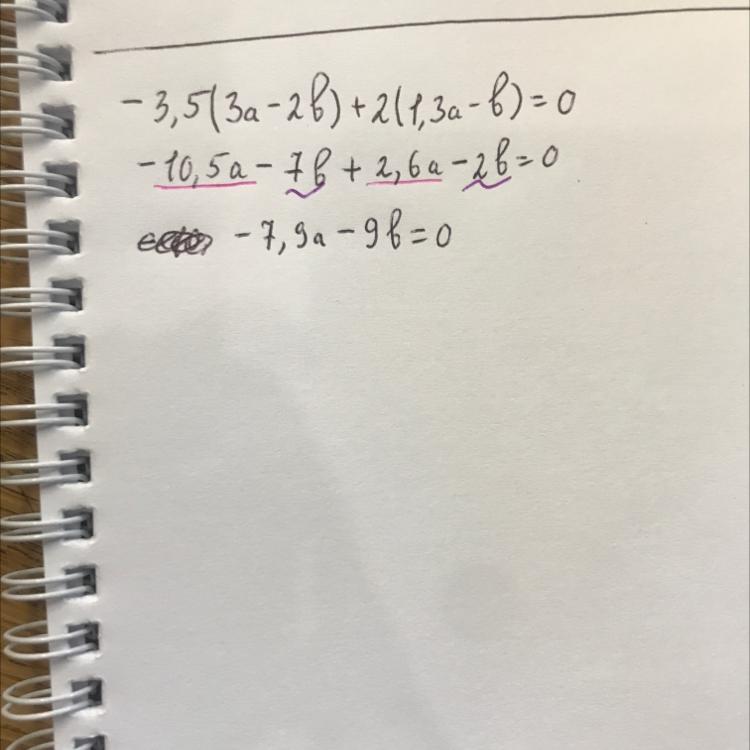 -3,5(3a-2b)+2(1,3a-b)=0
-10,5a-7b+2,6a-2b=0
-7,9a-9b=0